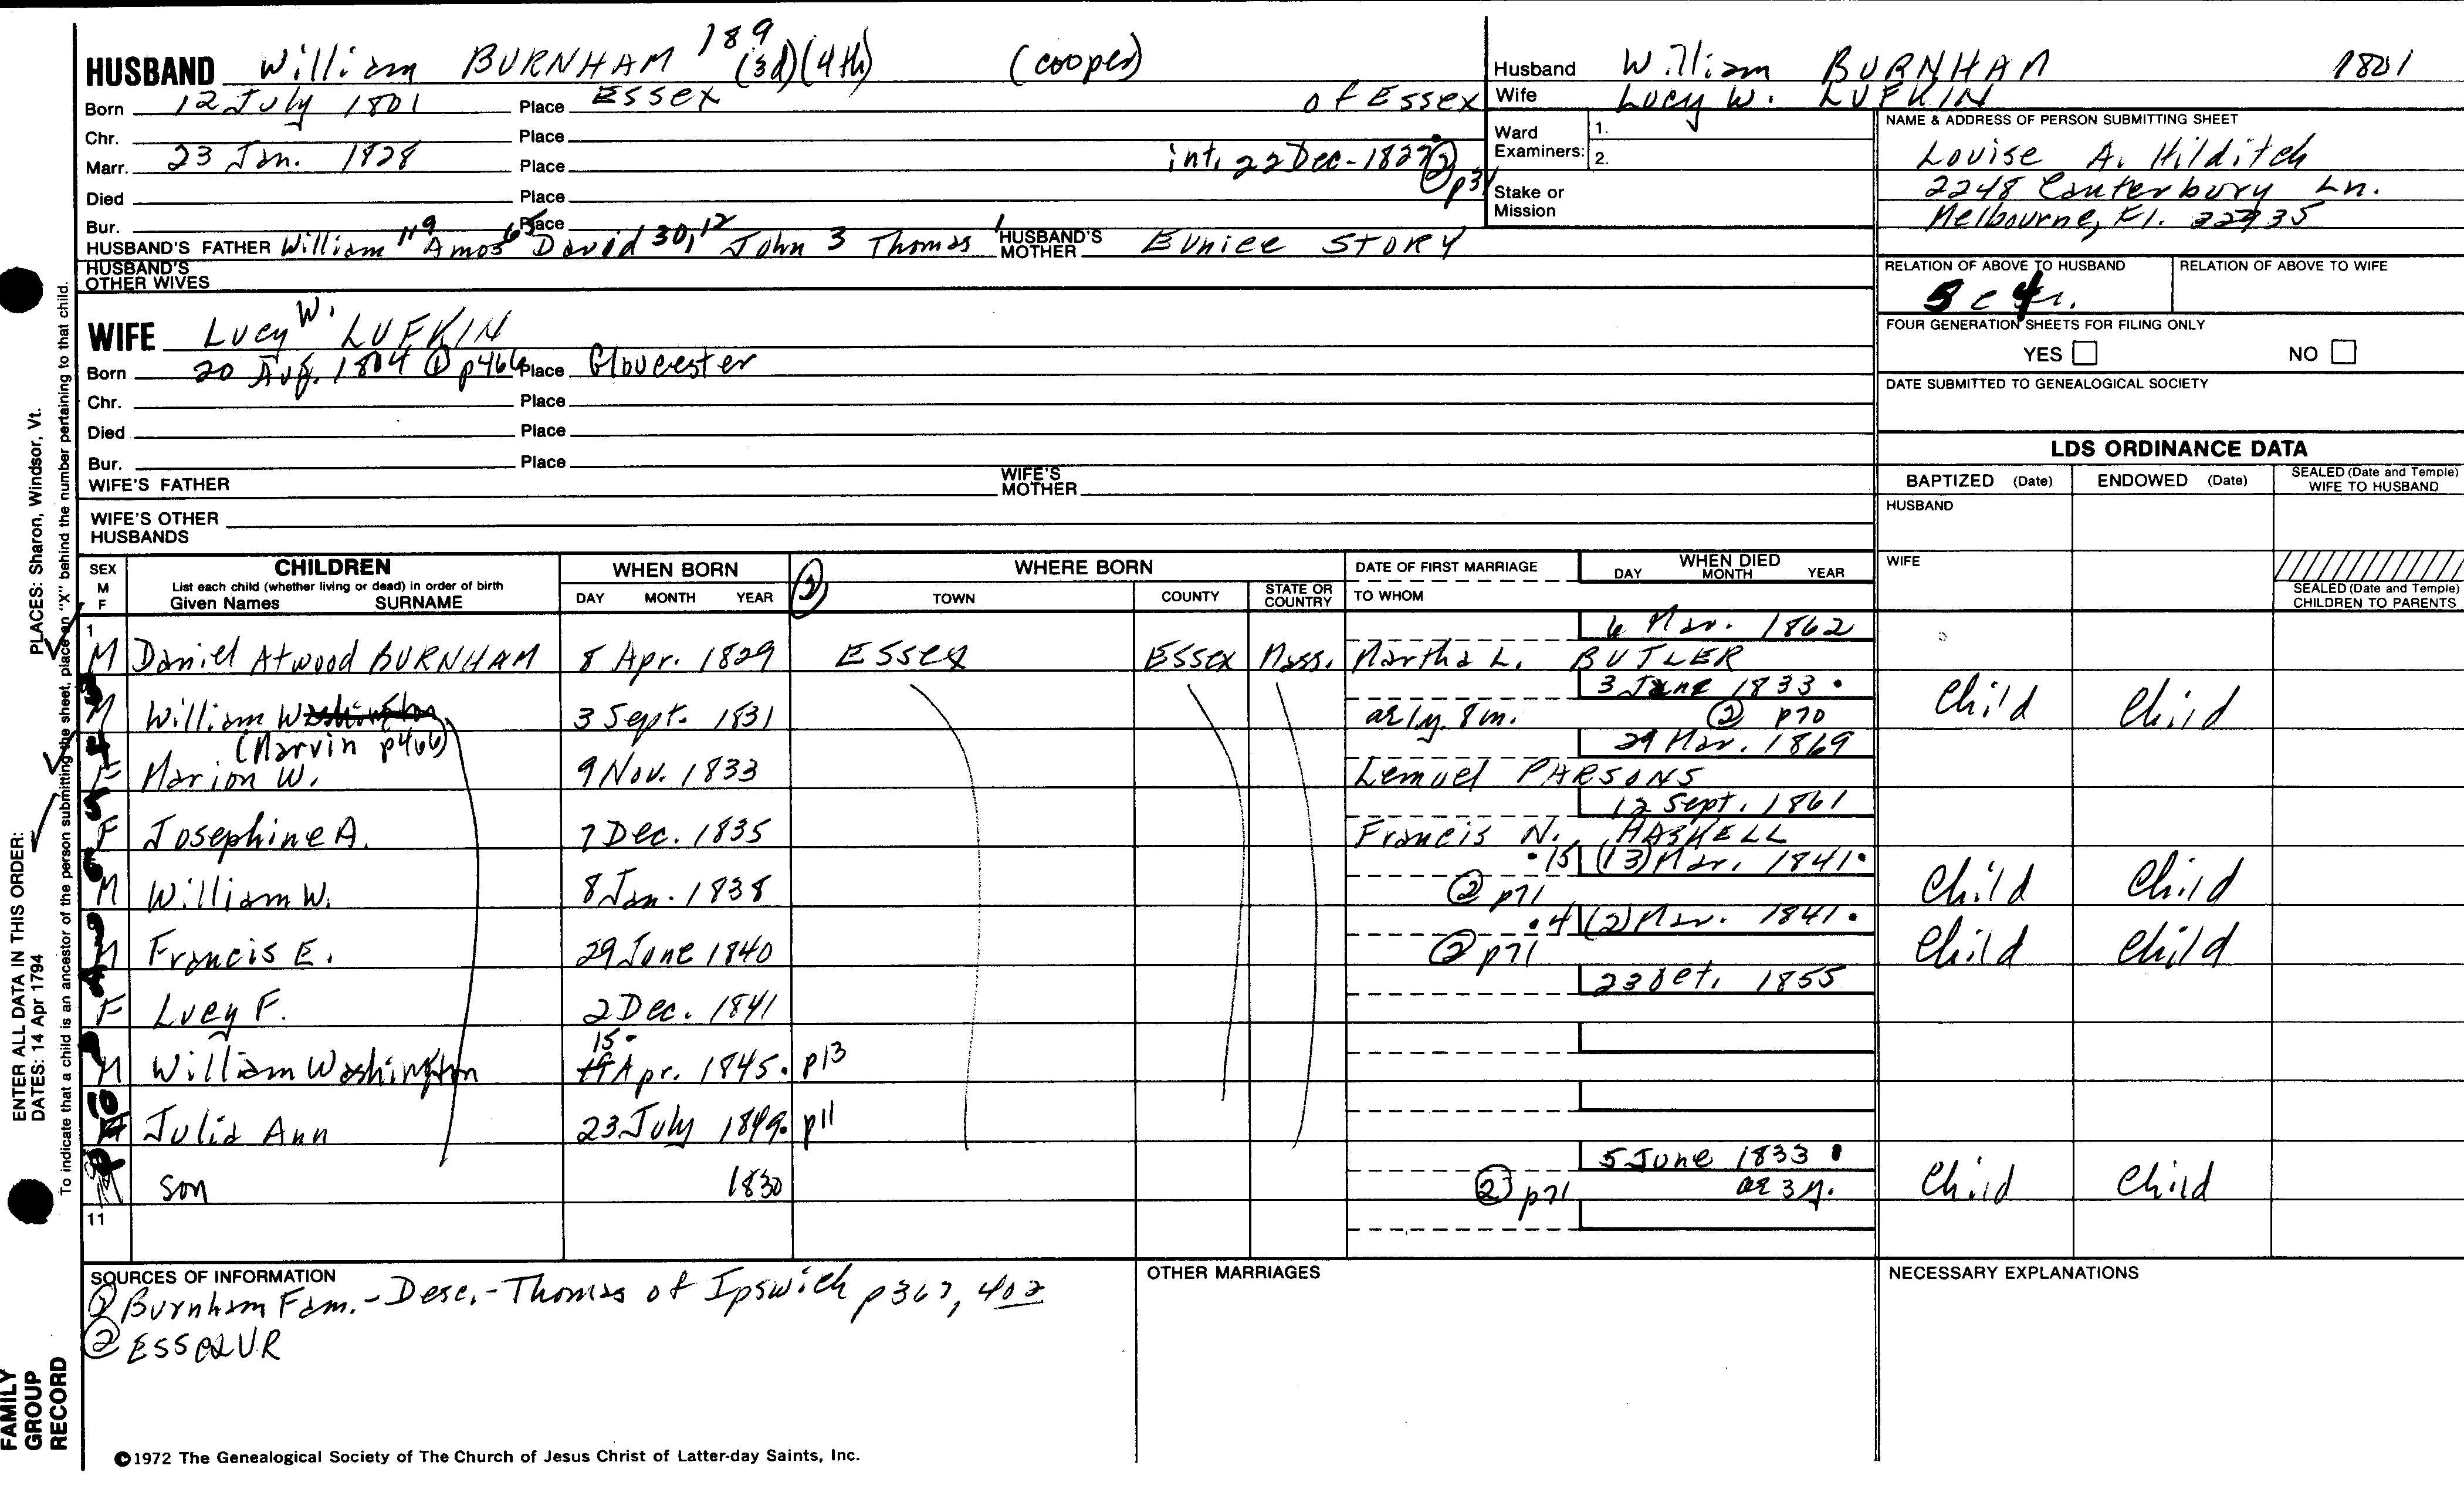 HUSBAND William BURNHAM 189 (3d)(4th) (cooper)
Born 12 July 1801 Place Essex of Essex
Chr. Place
Marr. 23 Jan. 1828 Place int. 22 Dec-1827 ② p31
Died Place
Bur. Place
HUSBAND'S FATHER William 119 Amos 65 David 30, 12 John 3 Thomas 1 HUSBAND'S MOTHER Eunice STORY
HUSBAND'S OTHER WIVES
WIFE Lucy W. LUFKIN
Born 20 Aug. 1804 ① p466 Place Gloucester
Chr. Place
Died Place
Bur. Place
WIFE'S FATHER WIFE'S MOTHER
WIFE'S OTHER HUSBANDS
Husband William BURNHAM 1801
Wife Lucy W. LUFKIN
Ward Examiners: 1. 2.
Stake or Mission
NAME & ADDRESS OF PERSON SUBMITTING SHEET
Louise A. Hilditch
2248 Canterbury Ln.
Melbourne, Fl.
RELATION OF ABOVE TO HUSBAND RELATION OF ABOVE TO WIFE
5 c 4r.
FOUR GENERATION SHEETS FOR FILING ONLY
YES NO
DATE SUBMITTED TO GENEALOGICAL SOCIETY
LDS ORDINANCE DATA
BAPTIZED (Date) ENDOWED (Date) SEALED (Date and Temple) WIFE TO HUSBAND
HUSBAND
WIFE
SEALED (Date and Temple) CHILDREN TO PARENTS
SEX M F CHILDREN List each child (whether living or dead) in order of birth Given Names SURNAME WHEN BORN DAY MONTH YEAR ② WHERE BORN TOWN COUNTY STATE OR COUNTRY DATE OF FIRST MARRIAGE TO WHOM WHEN DIED DAY MONTH YEAR
6 Mar. 1862
1 M Daniel Atwood BURNHAM 8 Apr. 1829 Essex Essex Mass. Martha L. BUTLER
3 June 1833
M William Washington 3 Sept. 1831 ae 1y. 8m. ② p70 Child Child
(Marvin p466) 29 Mar. 1869
F Marion W. 9 Nov. 1833 Lemuel PARSONS
12 Sept. 1861
F Josephine A. 7 Dec. 1835 Francis N. HASKELL
15 (13) Mar. 1841
M William W. 8 Jan. 1838 ② p71 Child Child
4 (2) Mar. 1841
M Francis E. 29 June 1840 ② p71 Child Child
23 Oct. 1855
F Lucy F. 2 Dec. 1841
15
M William Washington Apr. 1845 p13
Julia Ann 23 July 1849 p11
5 June 1833
son 1830 ② p71 ae 3y. Child Child
11
SOURCES OF INFORMATION
① Burnham Fam. - Desc. - Thomas of Ipswich p367, 402
② Essex V.R
OTHER MARRIAGES
NECESSARY EXPLANATIONS
©1972 The Genealogical Society of The Church of Jesus Christ of Latter-day Saints, Inc.
FAMILY GROUP RECORD
ENTER ALL DATA IN THIS ORDER:
DATES: 14 Apr 1794
PLACES: Sharon, Windsor, Vt.
To indicate that a child is an ancestor of the person submitting the sheet, place an "X" behind the number pertaining to that child.